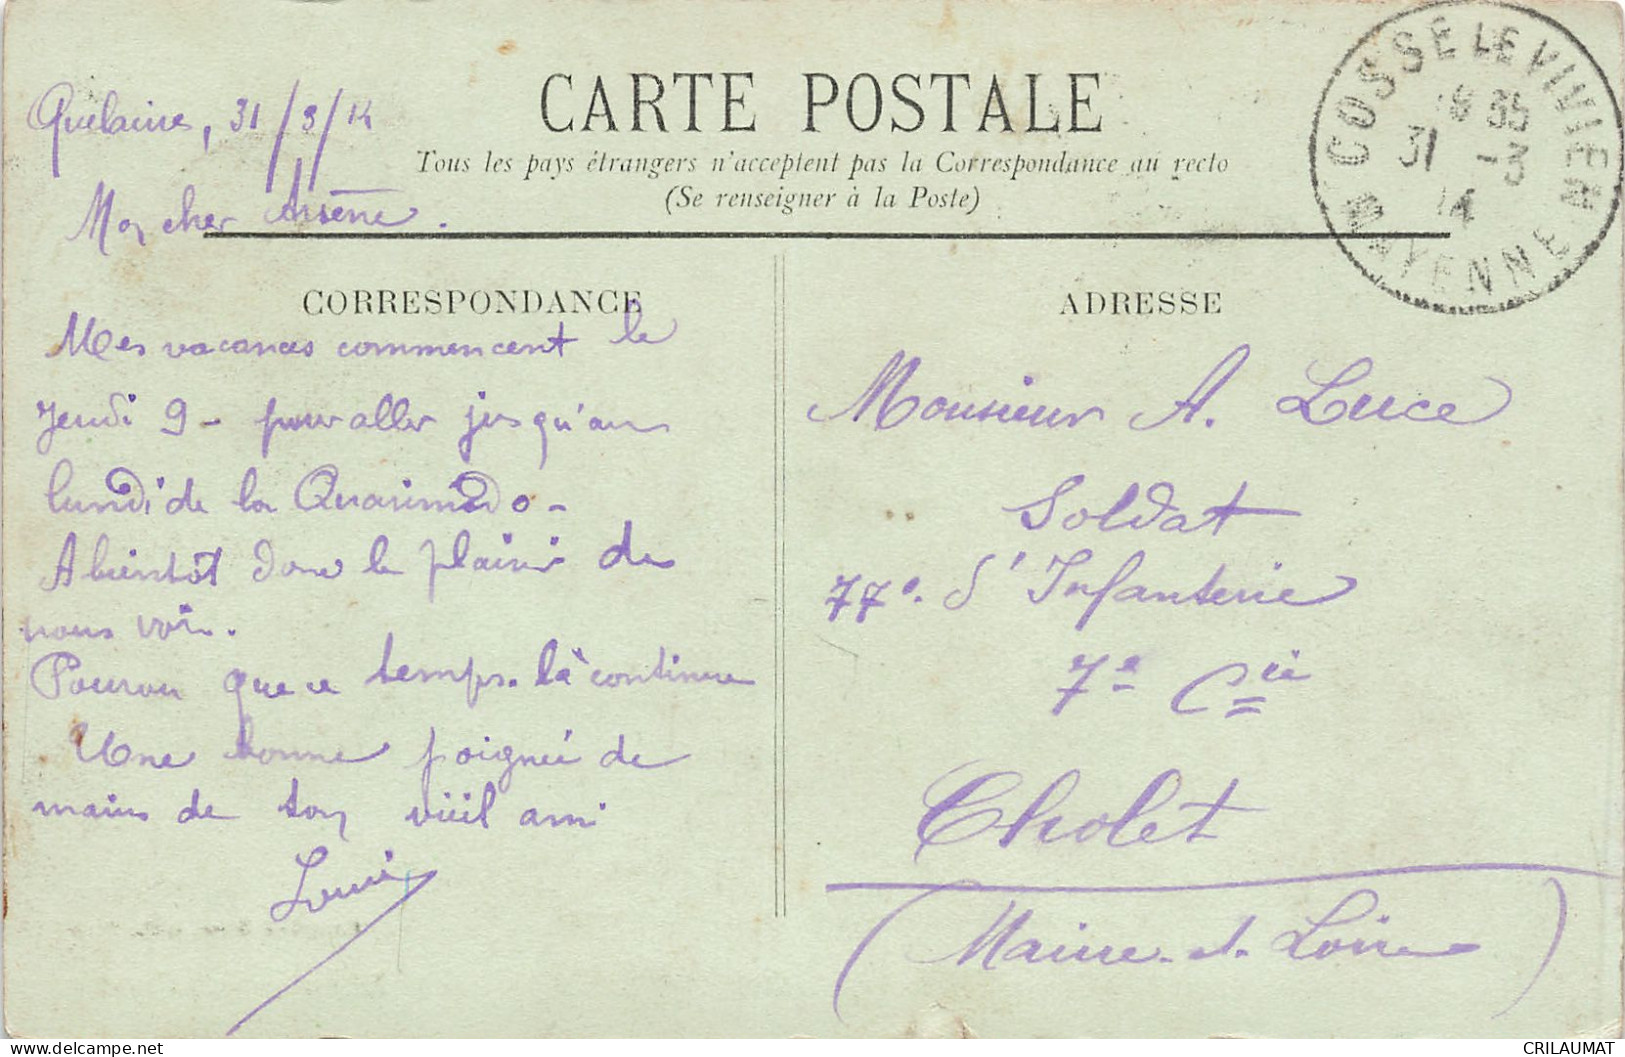 CARTE POSTALE
Tous les pays étrangers n'acceptent pas la Correspondance au recto
(Se renseigner à la Poste)
COSSÉ LE VIVIEN
18 35
31 -3
14
MAYENNE
Quelaines, 31/3/14
Mon cher Arsène.
CORRESPONDANCE
Mes vacances commencent le
Jeudi 9 - pour aller jusqu'au
lundi de la Quasimodo -
A bientôt donc le plaisir de
nous voir.
Pourvu que ce temps-là continue
Une bonne poignée de
mains de ton vieil ami
Louis
ADRESSE
Monsieur A. Luce
Soldat
77e. d'Infanterie
7e Cie
Cholet
(Maine-et-Loire)
delcampe.net
CRILAUMAT